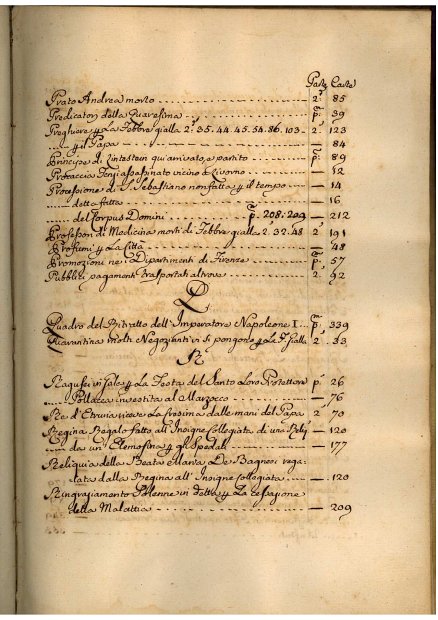 Parte Carte
Prato Andrea morto 2ª 85
Predicatori della Quaresima pª 39
Preghiere p La Febbre gialla 2ª 35. 44. 45. 54. 86. 103 2 123
p il Papa — 84
Principe di qui arrivato, e partito pª 89
Procaccia assassinato vicino a Livorno — 12
Processione di S. Sebastiano non fatta p il tempo — 14
detta fatta — 16
del Corpus Domini pª 208. 209 — 212
Professori di Medicina morti di Febbre gialla 2. 32. 48 2 191
Profumi p La Città — 48
Promozioni ne' Dipartimenti di Firenze pª 57
Pubblici pagamenti trasportati altrove 2 92
Q
Quadro del Ritratto dell'Imperatore Napoleone I pª 339
Quarantina molti Negozianti vi si pongono p La F. Gialla 2 33
R
Ragusei in Sale p La Festa del Santo Loro Protettore pª 26
Pollacca investita al Marzocco — 76
Re d'Etruria riceve La Cresima dalle mani del Papa 2 70
Regina Regalo fatto all'Insigne Collegiata di una Reliq — 120
da un' Elemosina p gli Spedali — 177
Reliquia della Beata Maria De Bagnesi rega-
lata dalla Regina all'Insigne Collegiata — 120
Ringraziamento Solenne in detta p La cessazione
della Malattia — 209